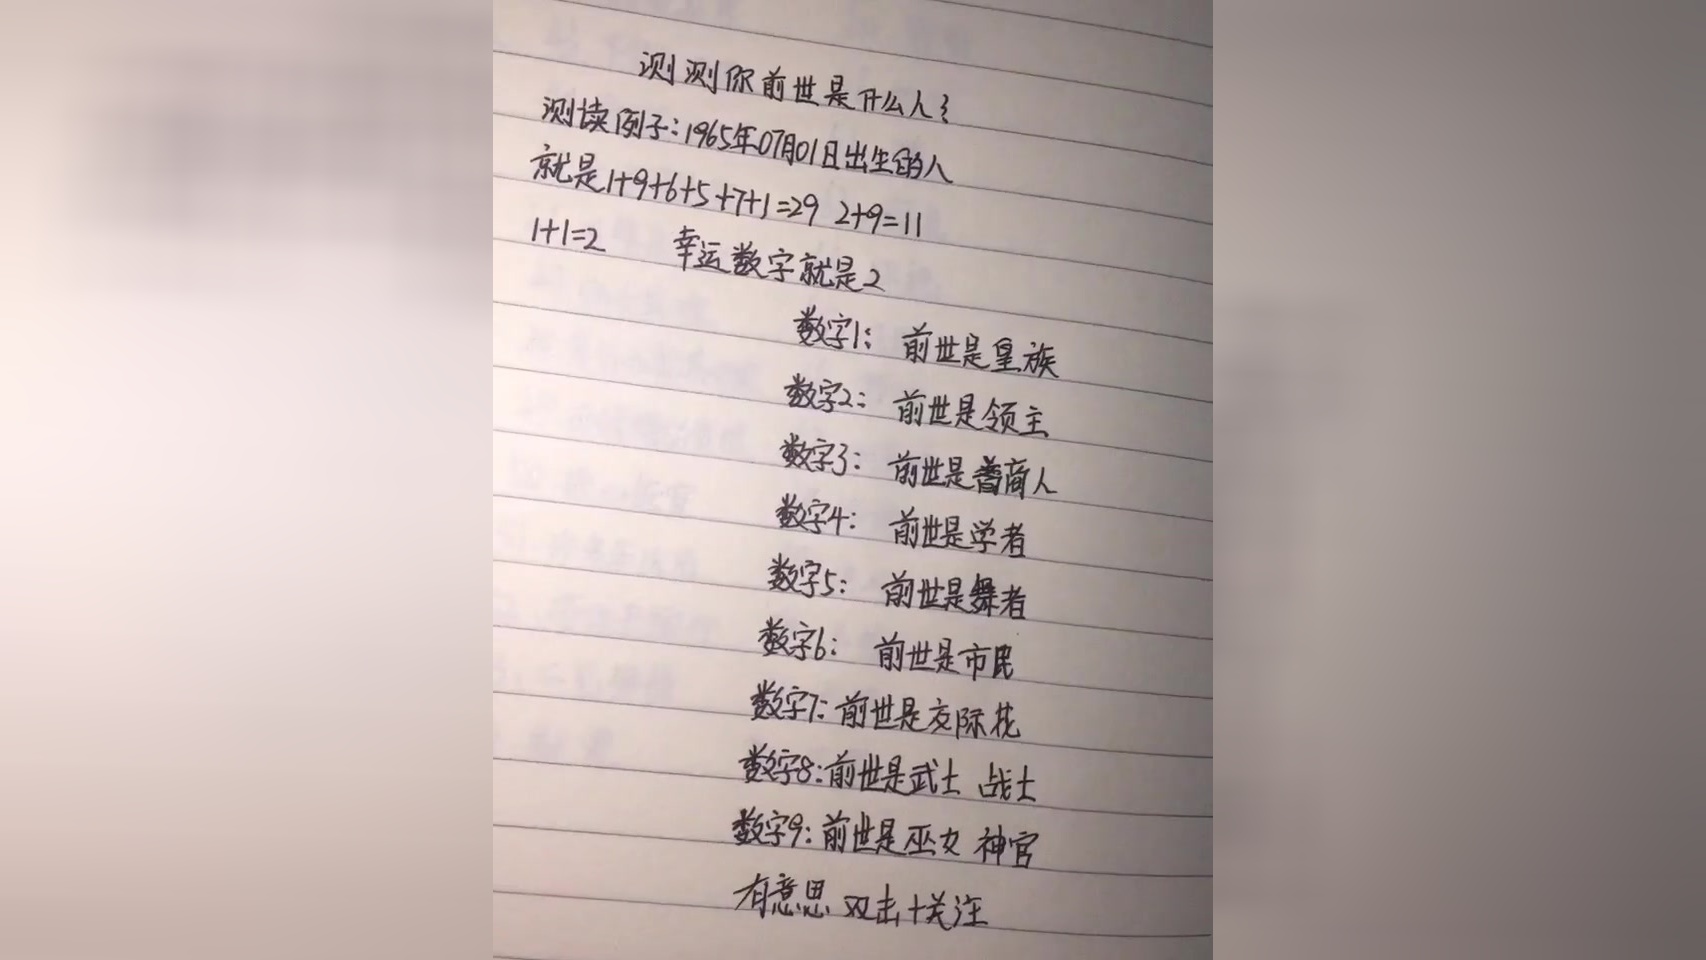 测测你前世是什么人?
测读例子:1965年07月01日出生的人
就是1+9+6+5+7+1=29 2+9=11
1+1=2 幸运数字就是2
数字1: 前世是皇族
数字2: 前世是领主
数字3: 前世是商人
数字4: 前世是学者
数字5: 前世是舞者
数字6: 前世是市民
数字7:前世是交际花
数字8:前世是武士 战士
数字9:前世是巫女 神官
有意思 双击+关注